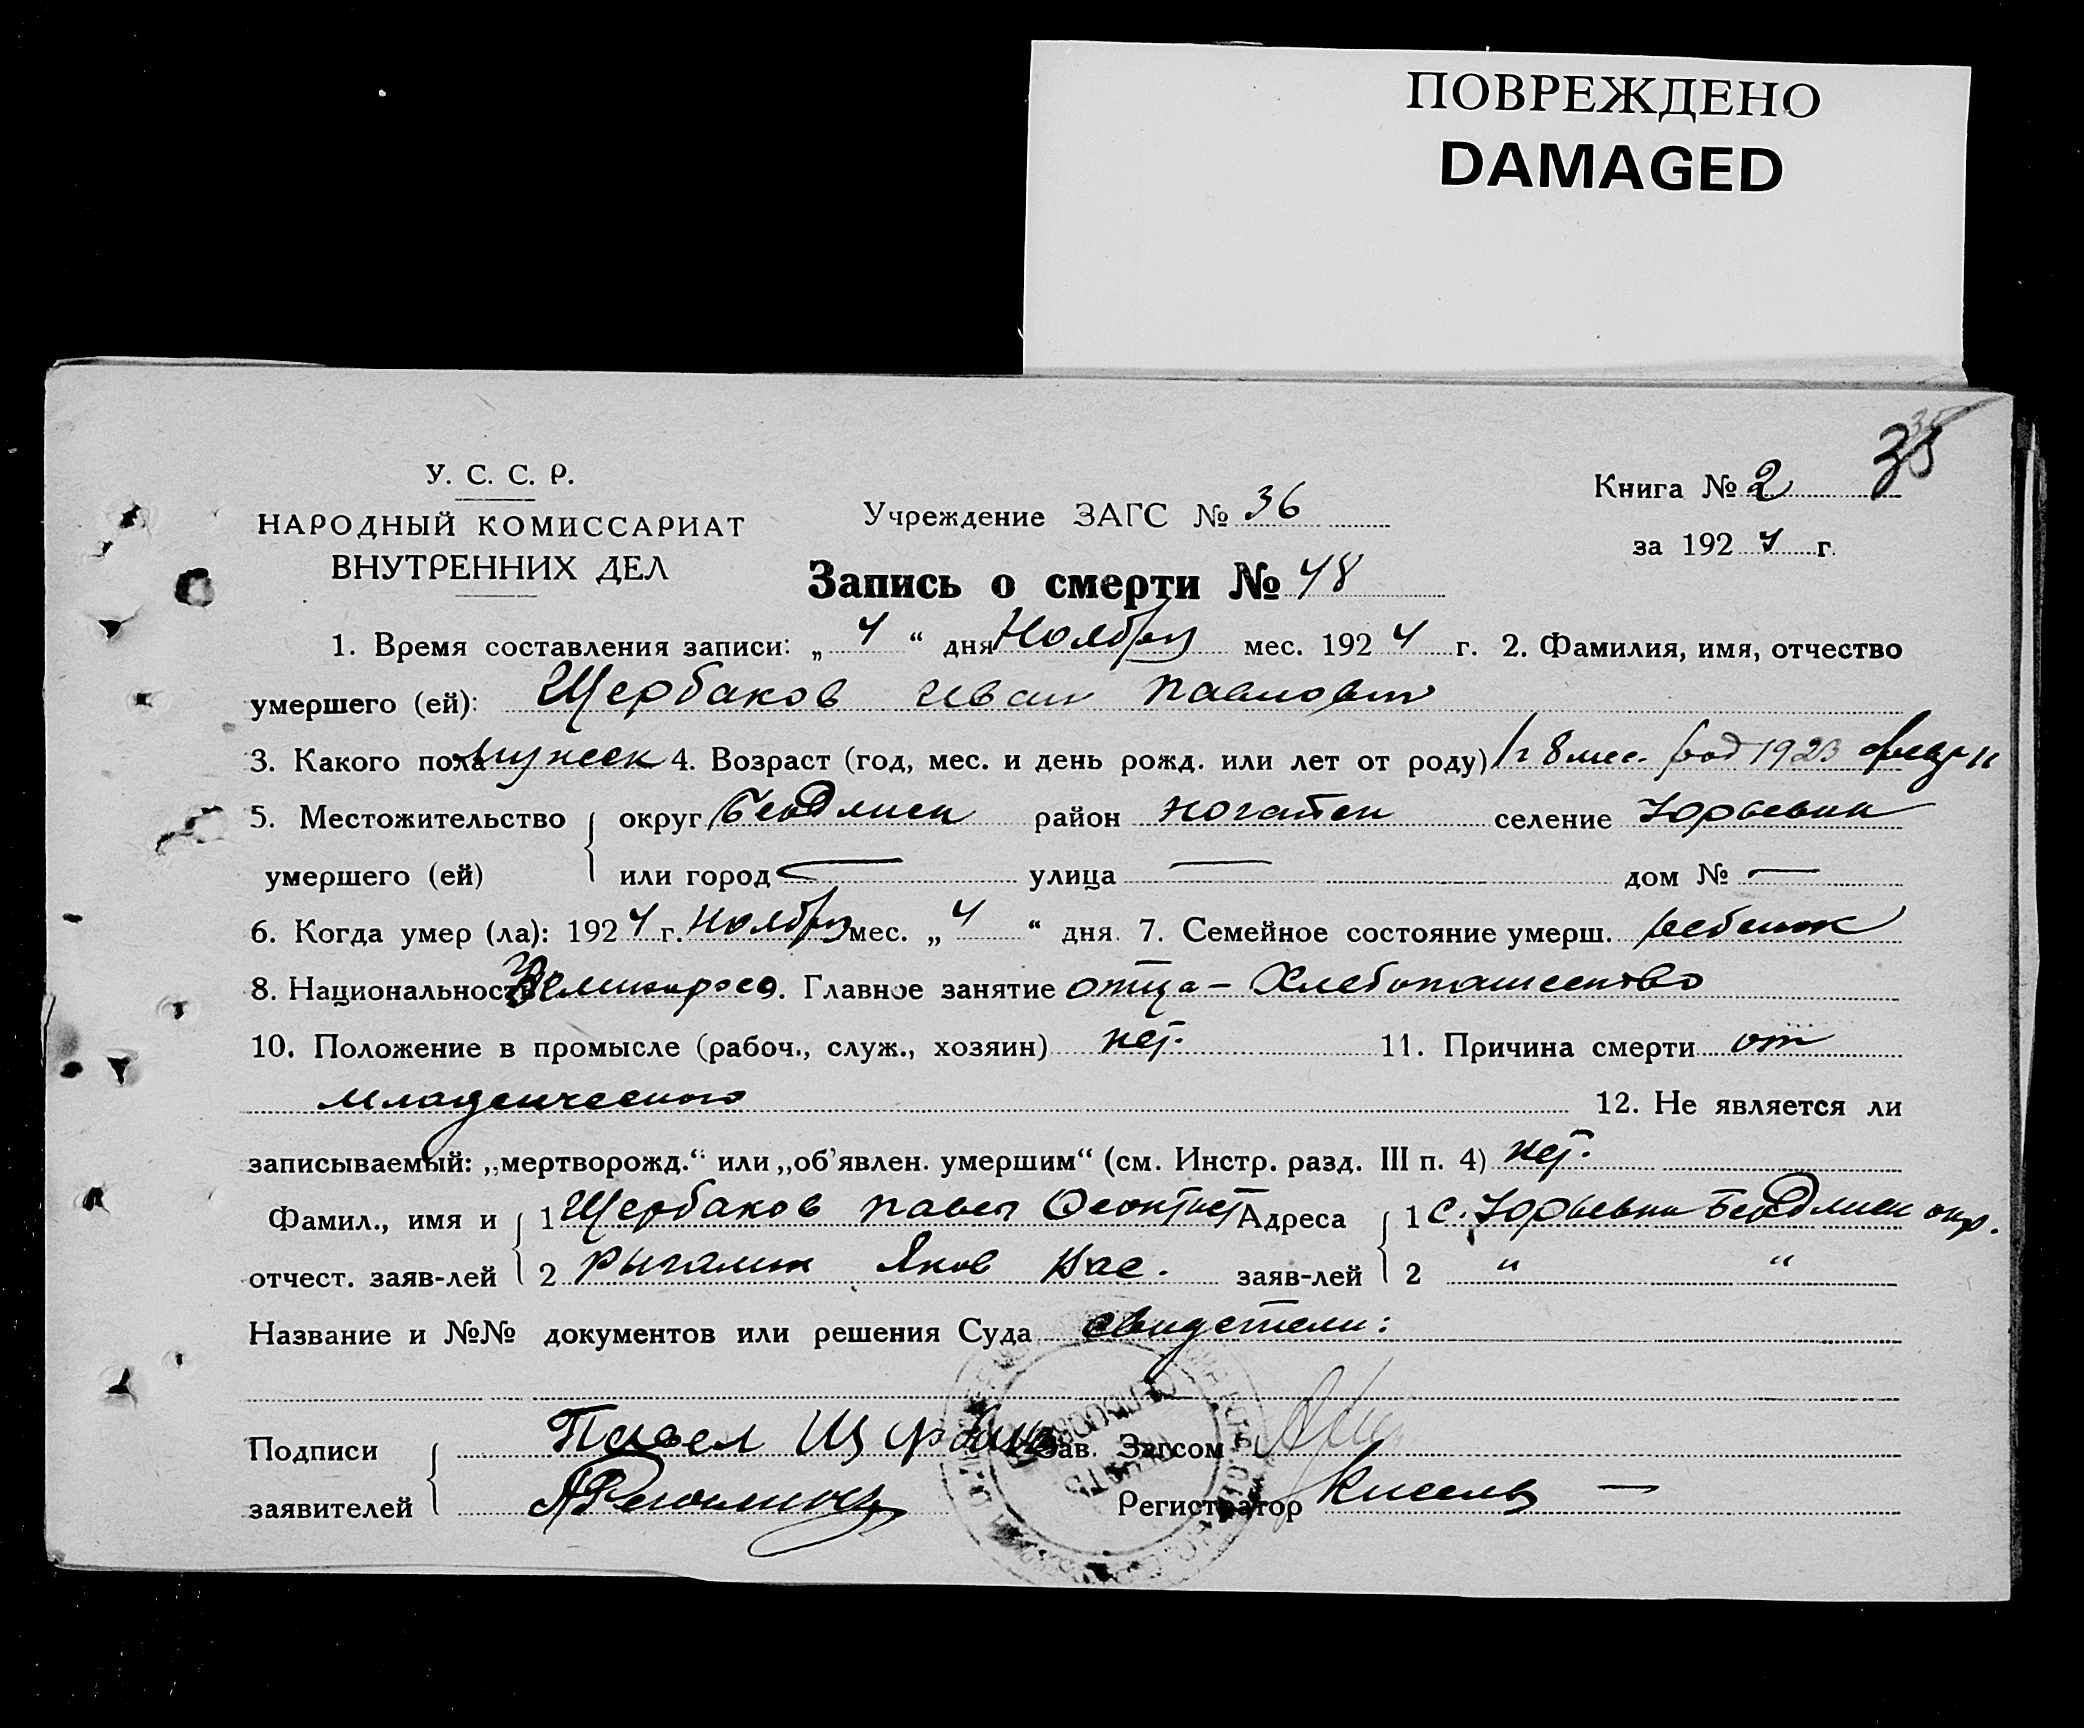 ПОВРЕЖДЕНО
DAMAGED
38
У. С. С. Р.
НАРОДНЫЙ КОМИССАРИАТ
ВНУТРЕННИХ ДЕЛ
Учреждение ЗАГС № 36
Книга № 2
за 1924 г.
Запись о смерти № 48
1. Время составления записи: „4“ дня Ноября мес. 1924 г. 2. Фамилия, имя, отчество
умершего (ей): Щербаков Иван Павлович
3. Какого пола мужеск 4. Возраст (год, мес. и день рожд. или лет от роду) 1 г 8 мес. род 1923
5. Местожительство округ Бердянск район Ногайск селение Юрьевки
умершего (ей) или город — улица — дом № —
6. Когда умер (ла): 1924 г. Ноября мес. „4“ дня. 7. Семейное состояние умерш. ребенок
8. Национальность Великорос 9. Главное занятие отца – Хлебопашество
10. Положение в промысле (рабоч., служ., хозяин) нет. 11. Причина смерти от
младенческого 12. Не является ли
записываемый: „мертворожд.“ или „об'явлен. умершим“ (см. Инстр. разд. III п. 4) нет.
Фамил., имя и 1 Щербаков Павел Адреса 1 с. Юрьевки Бердянск окр.
отчест. заяв-лей 2 Яков Вас. заяв-лей 2 " "
Название и №№ документов или решения Суда свидетели:
Подписи Павел Зав. Загсом
заявителей Регистратор Кисель —